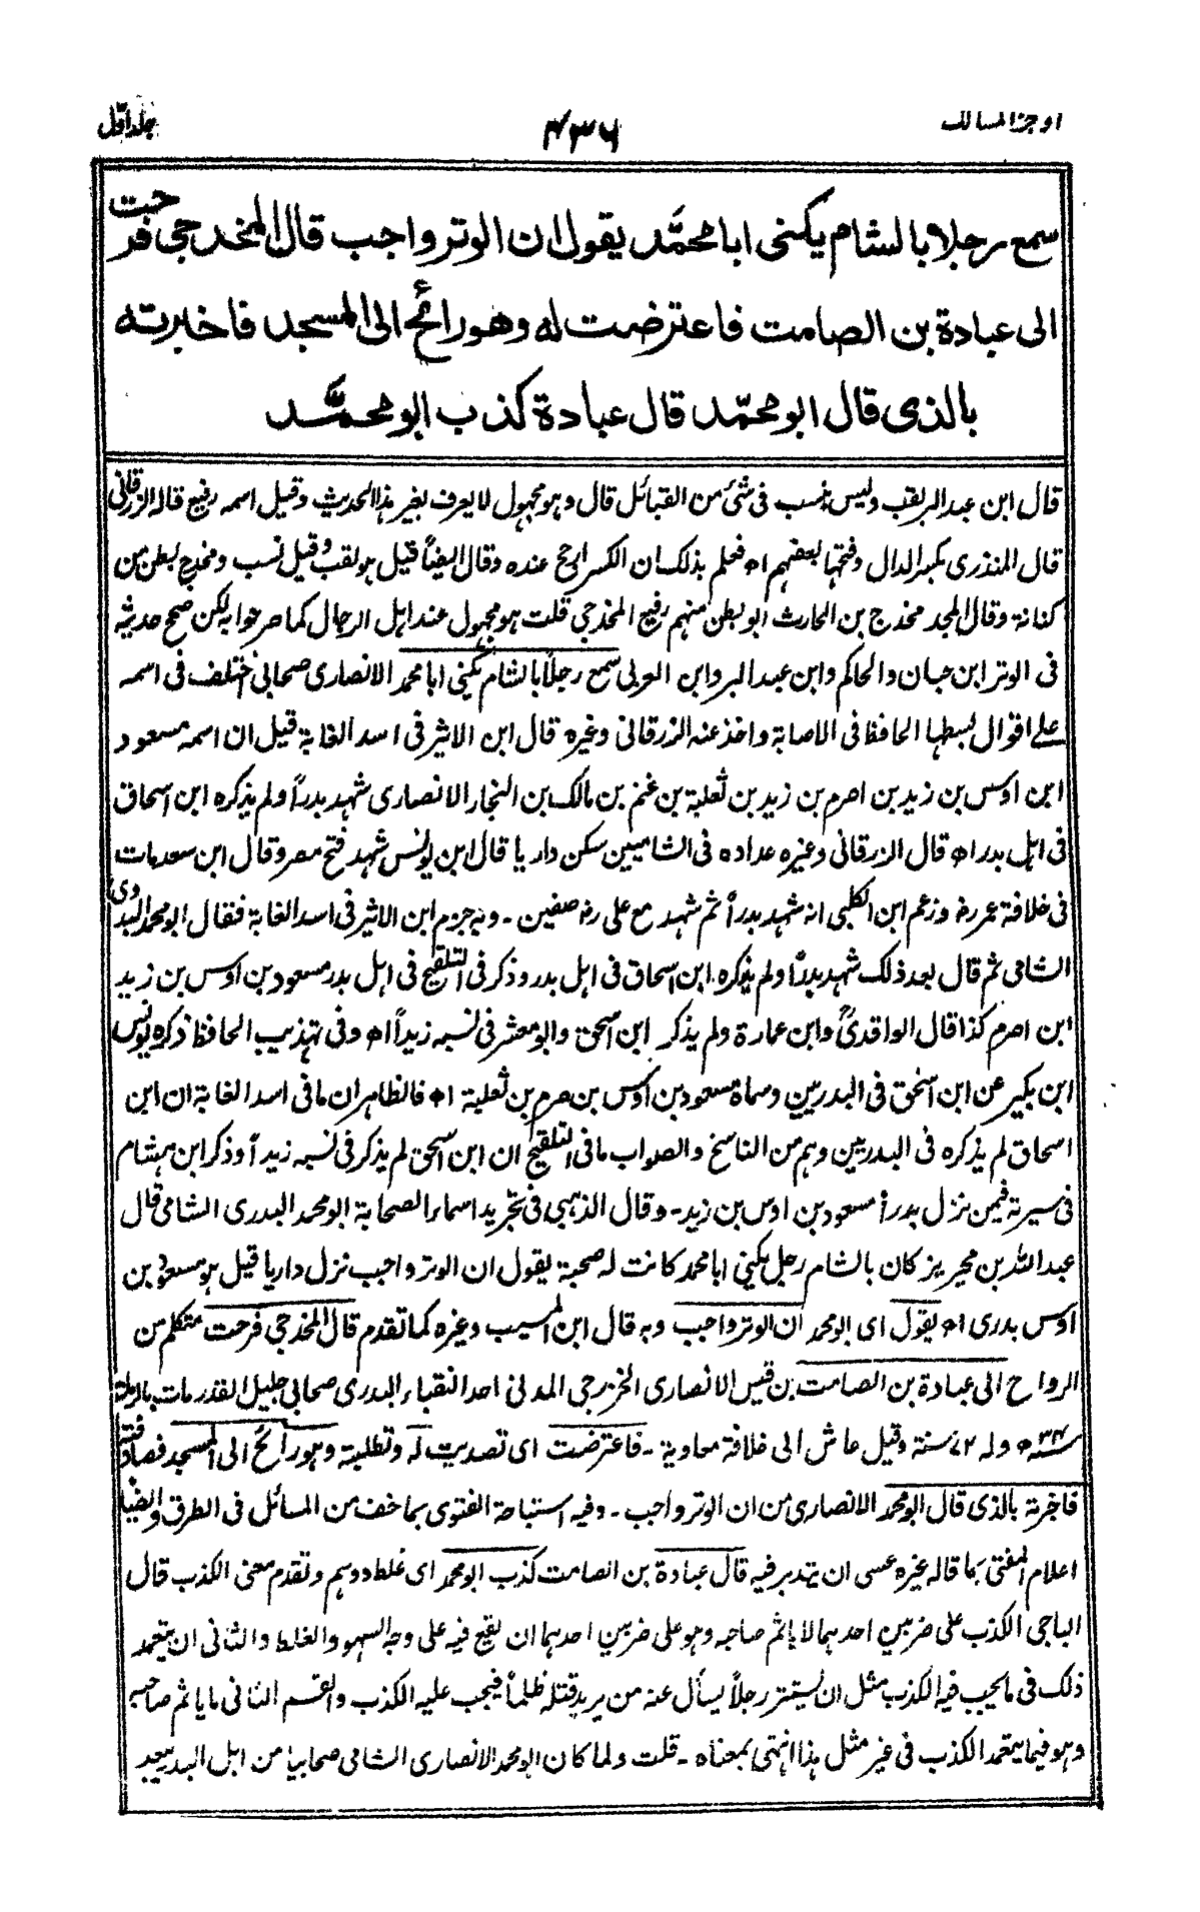 اوجز المسالك
۴۳۶
جلد اوّل
سمع رجلا بالشام يكنى ابا محمَّد يقول ان الوتر واجب قال المخدجى فرحت
الى عبادة بن الصامت فاعترضت له وهو رائح الى المسجد فاخبرته
بالذى قال ابو محمّد قال عبادة كذب ابو محمَّد
قال ابن عبد البر لقب وليس بنسب فى شئ من القبائل قال وهو مجهول لا يعرف بغير هذا الحديث وقيل اسمه رفيع قاله الزرقانى
قال المنذرى بكسر الدال وفتحها بعضهم اھ فعلم بذلك ان الكسر ارجح عنده وقال ايضاً قيل هو لقب وقيل نسب ومخدج بطن من
كنانة وقال المجد مخدج بن الحارث ابو بطن منهم رفيع المخدجي قلت هو مجهول عند اهل الرجال كما صرحوا به لكن صحح حديثه
فى الوتر ابن حبان والحاكم وابن عبد البر وابن العربى سمع رجلاً بالشام يكنى ابا محمد الانصارى صحابى اختلف فى اسمه
على اقوال بسطها الحافظ فى الاصابة واخذ عنه الزرقانى وغيره قال ابن الاثير فى اسد الغابة قيل ان اسمه مسعود
ابن اوس بن زيد بن اصرم بن زيد بن ثعلبة بن غنم بن مالك بن النجار الانصارى شهد بدراً ولم يذكره ابن اسحاق
فى اهل بدر اھ قال الزرقانى وغيره عداده فى الشاميين سكن داريا قال ابن يونس شهد فتح مصر وقال ابن سعد مات
فى خلافة عمر رض وزعم ابن الكلبى انه شهد بدراً ثم شهد مع على رض صفين ـ وبه جزم ابن الاثير فى اسد الغابة فقال ابو محمد البدرى
الشامى ثم قال بعد ذلك شهد بدراً ولم يذكره ابن اسحاق فى اهل بدر وذكر فى التلقيح فى اهل بدر مسعود بن اوس بن زيد
ابن اصرم كذا قال الواقدىؒ وابن عمارة ولم يذكر ابن اسحق وابو معشر فى نسبه زيداً اھ وفى تهذيب الحافظ ذكره يونس
ابن بكير عن ابن اسحق فى البدريين وسماه مسعود بن اوس بن صرم بن ثعلبة اھ فالظاهر ان ما فى اسد الغابة ان ابن
اسحاق لم يذكره فى البدريين وهم من الناسخ والصواب ما فى التلقيح ان ابن اسحق لم يذكر فى نسبه زيداً وذكر ابن هشام
فى سيرته فيمن نزل بدراً مسعود بن اوس بن زيد ـ وقال الذهبى فى تجريد اسماء الصحابة ابو محمد البدرى الشامى قال
عبد الله بن محيريز كان بالشام رجل يكنى ابا محمد كانت له صحبة يقول ان الوتر واجب نزل داريا قيل هو مسعود بن
اوس بدرى اھ يقول اى ابو محمد ان الوتر واجب وبه قال ابن المسيب وغيره كما تقدم قال المخدجى فرحت متكلم من
الرواح الى عبادة بن الصامت بن قيس الانصارى الخزرجى المدنى احد النقباء البدرى صحابى جليل القدر مات بالرملة
سنة ۳۴ھ وله ۷۲ سنة وقيل عاش الى خلافة معاوية ـ فاعترضت اى تصديت له وتطلبته وهو رائح الى المسجد فصادفته
فاخبرته بالذى قال ابو محمد الانصارى من ان الوتر واجب ـ وفيه استباحة الفتوى بما خف من المسائل فى الطرق وايضا
اعلام المفتى بما قاله غيره عسى ان يتدبر فيه قال عبادة بن الصامت كذب ابو محمد اى غلط ووهم وتقدم معنى الكذب قال
الباجى الكذب على ضربين احدهما لا ياثم صاحبه وهو على ضربين احدهما ان يقع فيه على وجه السهو والغلط والثانى ان يتعمد
ذلك فى ما يجب فيه الكذب مثل ان يستتر رجلاً يسأل عنه من يريد قتله ظلماً فيجب عليه الكذب والقسم الثانى ما ياثم صاحبه
وهو فيما يتعمد الكذب فى غير مثل هذا انتهى بمعناه ـ قلت ولما كان ابو محمد الانصارى الشامى صحابيا من اهل البدر يبعد